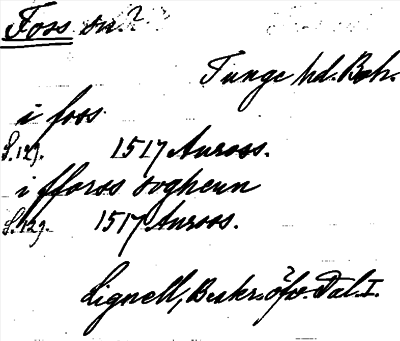 Foss sn?
Tunge hd. Boh.
i foos
S. 123. 1517 Anross.
i fforss soghenn
S. 123. 1517 Anroos.
Lignell, Beskr. öfv. Dal. I.